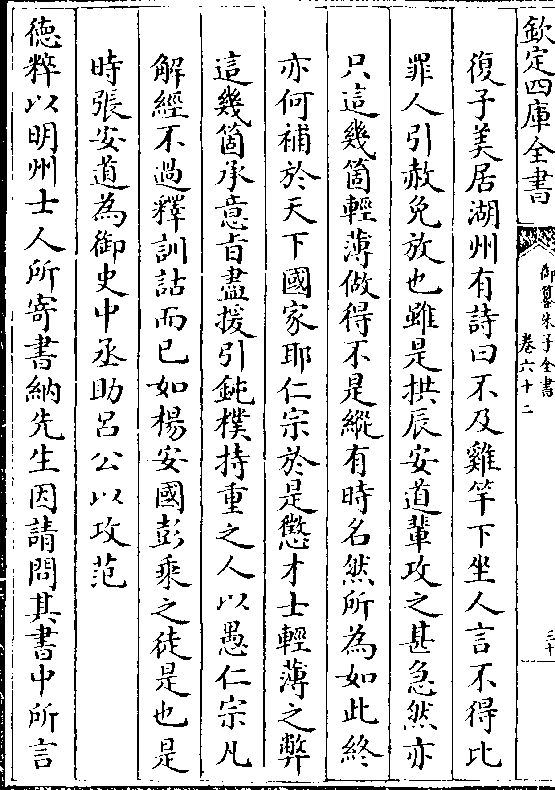 欽定四庫全書
御纂朱子全書
卷六十二
三十
復子美居湖州有詩曰不及雞竿下坐人言不得比
罪人引赦免放也雖是拱辰安道輩攻之甚急然亦
只這幾箇輕薄做得不是縱有時名然所為如此終
亦何補於天下國家耶仁宗於是懲才士輕薄之弊
這幾箇承意旨盡援引鈍樸持重之人以愚仁宗凡
解經不過釋訓詁而已如楊安國彭乘之徒是也是
時張安道為御史中丞助呂公以攻范
德粹以明州士人所寄書納先生因請問其書中所言